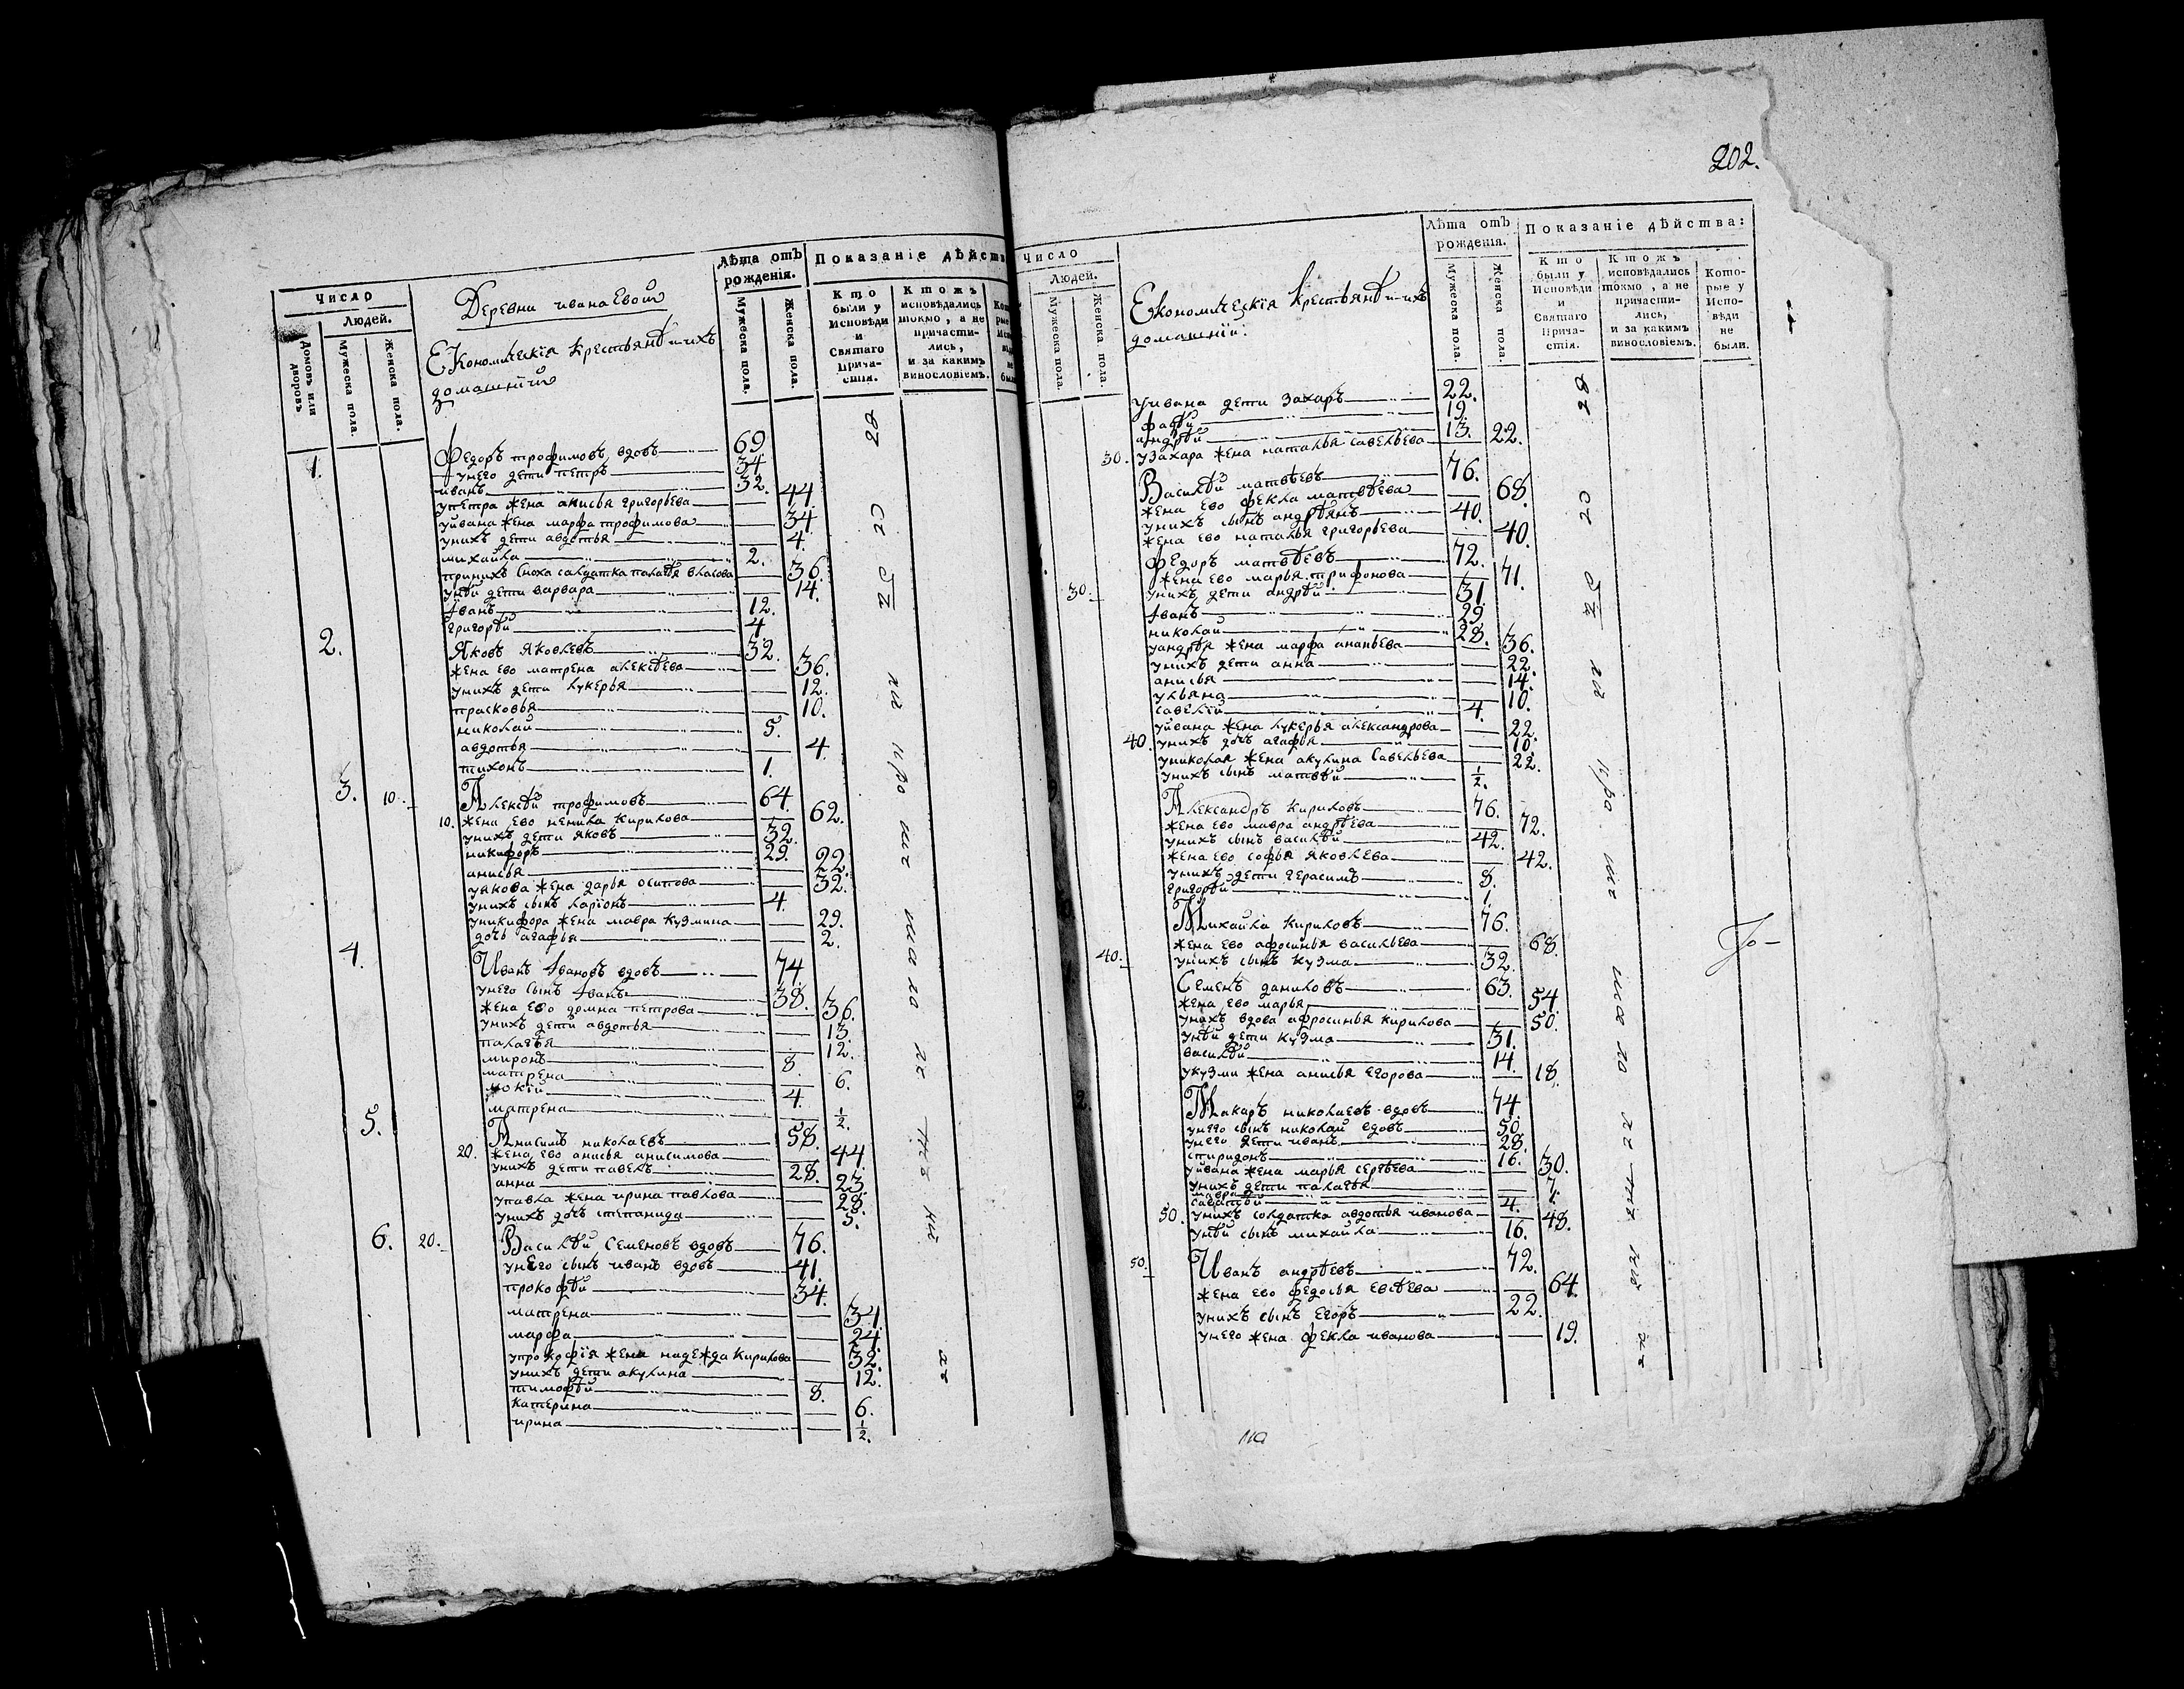 Число
Людей.
Домовъ или дворовъ
Мужеска пола.
Женска пола.
Деревни иванаЕвой
ЕКономическія Крестьянѣ и ихъ
домашнии
Лѣта отъ рожденія.
Мужеска пола.
Женска пола.
Показаніе дѣйств
Кто были у Исповѣди и Святаго Прича- стія.
Ктожъ исповѣдались токмо, а не причасти- лись, и за какимъ винословіемъ.
1. Федоръ трофимовъ вдовъ 69.
унего дети петръ 34.
иванъ 32.
упетра жена анисья григорьева 44.
уивана жена марфа трофимова 34.
унихъ дети авдотья 4.
михайла 2.
принихъ сноха салдатка палагѣя власова 36.
унѣй дети варвара 14.
іванъ 12.
григорѣй 4.
2. Яковъ Яковлевъ 32.
жена ево матрена алексѣева 36.
унихъ дети лукерья 12.
прасковья 10.
николай 5.
авдотья 4.
тихонъ 1.
3. 10. Алексѣй трофимовъ 64.
10. жена ево ненила кирилова 62.
унихъ дети яковъ 32.
никифоръ 29.
анисья 22.
уякова жена дарья осипова 32.
унихъ сынъ ларіонъ 4.
уникифора жена мавра кузмина 29.
дочь агафья 2.
4. Иванъ івановъ вдовъ 74.
унего сынъ іванъ 38.
жена ево домна петрова 36.
унихъ дети авдотья 13.
палагѣя 12.
миронъ 8.
матрена 6.
мокій 4.
матрена 1/2.
5. Анисимъ николаевъ 58.
20. жена ево анисья анисимова 44.
унихъ дети павелъ 28.
анна 23.
упавла жена ирина павлова 28.
унихъ дочь степанида 5.
6. 20. Василѣй Семеновъ вдовъ 76.
унего сынъ иванъ вдовъ 41.
прокофѣй 34.
матрена 34.
марфа 24.
упрокофія жена надежда кирилова 32.
унихъ дети акулина 12.
тимофѣй 8.
катерина 6.
ирина 1/2.
202.
Число
Людей.
Мужеска пола.
Женска пола.
Економическія Крестьянѣ и ихъ
домашніи.
Лѣта отъ рожденія.
Мужеска пола.
Женска пола.
Показаніе дѣйства:
Кто были у Исповѣди и Святаго Прича- стія.
Ктожъ исповѣдались токмо, а не причасти- лись, и за какимъ винословіемъ.
Кото- рые у Испо- вѣди не были.
уивана дети захаръ 22.
фадѣй 19.
андрѣй 13.
30. узахара жена наталья савельева 22.
Василѣй матвѣевъ 76.
жена ево фекла матвѣева 68.
унихъ сынъ андрѣянъ 40.
жена ево наталья григорьева 40.
Федоръ матвѣевъ 72.
жена ево марья трифонова 71.
30. унихъ дети андрѣй 31.
іванъ 29.
николай 28.
уандрѣя жена марфа ананьева 36.
унихъ дети анна 22.
анисья 14.
ульяна 10.
савелій 4.
уивана жена лукерья александрова 22.
40. унихъ дочь агафья 10.
униколая жена акулина савельева 22.
унихъ сынъ матвѣй 1/2.
Александръ Кириловъ 76.
жена ево мавра андрѣева 72.
унихъ сынъ василѣй 42.
жена ево софья яковлева 42.
унихъ дети герасимъ 8.
григорѣй 1.
Михайла Кириловъ 76.
жена ево афросинья васильева 68.
40. унихъ сынъ кузма 32.
Семенъ даниловъ 63.
жена ево марья 54.
унихъ вдова афросинья кирилова 50.
унѣй дети кузма 31.
василѣй 14.
укузми жена анисья егорова 18.
Макаръ николаевъ вдовъ 74.
унего сынъ николай вдовъ 50.
унего дети иванъ 28.
спиридонъ 16.
уивана жена марья сергѣева 30.
унихъ дети палагѣя 7.
мавра
саватѣй 4.
50. унихъ солдатка авдотья иванова 48.
унѣй сынъ михайла 16.
50. Иванъ андрѣевъ 72.
жена ево федосья евсѣева 64.
унихъ сынъ егоръ 22.
унего жена фекла иванова 19.